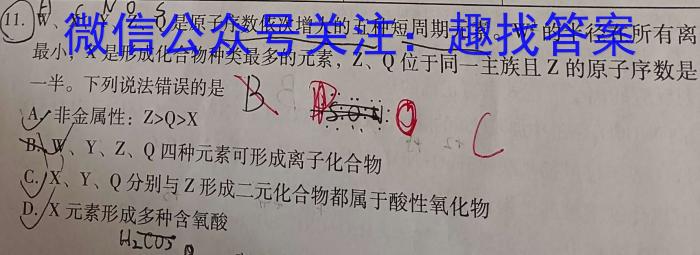 H C N O S
11. W、X、Y、Z、Q是原子序数依次增大的五种短周期元素。W⁺的半径在所有离
微信公众号关注：趣找答案
最小，X是形成化合物种类最多的元素，Z、Q位于同一主族且Z的原子序数是
一半。下列说法错误的是
B
C
A. 非金属性：Z>Q>X
B. W、Y、Z、Q四种元素可形成离子化合物
C. X、Y、Q分别与Z形成二元化合物都属于酸性氧化物
D. X元素形成多种含氧酸
H₂CO₃